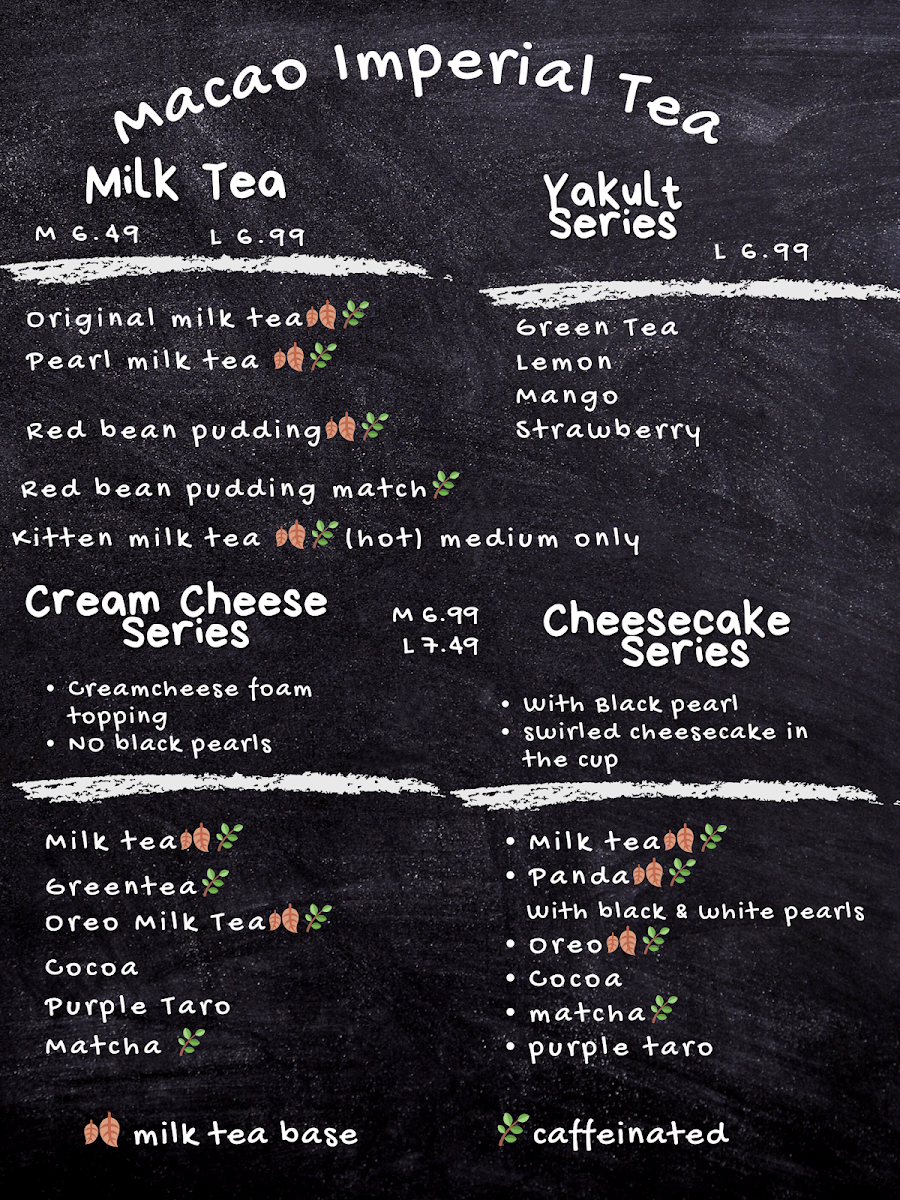 Macao Imperial Tea
Milk Tea
M 6.49 L 6.99
Original milk tea🍂🌿
Pearl milk tea 🍂🌿
Red bean pudding🍂🌿
Red bean pudding match🌿
Kitten milk tea 🍂🌿(hot) medium only
Yakult
Series
L 6.99
Green Tea
Lemon
Mango
Strawberry
Cream Cheese
Series
M 6.99
L 7.49
• Creamcheese foam
topping
• NO black pearls
Milk tea🍂🌿
Greentea🌿
Oreo Milk Tea🍂🌿
Cocoa
Purple Taro
Matcha 🌿
Cheesecake
Series
• With Black pearl
• swirled cheesecake in
the cup
• Milk tea🍂🌿
• Panda🍂🌿
With black & white pearls
• Oreo🍂🌿
• Cocoa
• matcha🌿
• purple taro
🍂 milk tea base
🌿 caffeinated